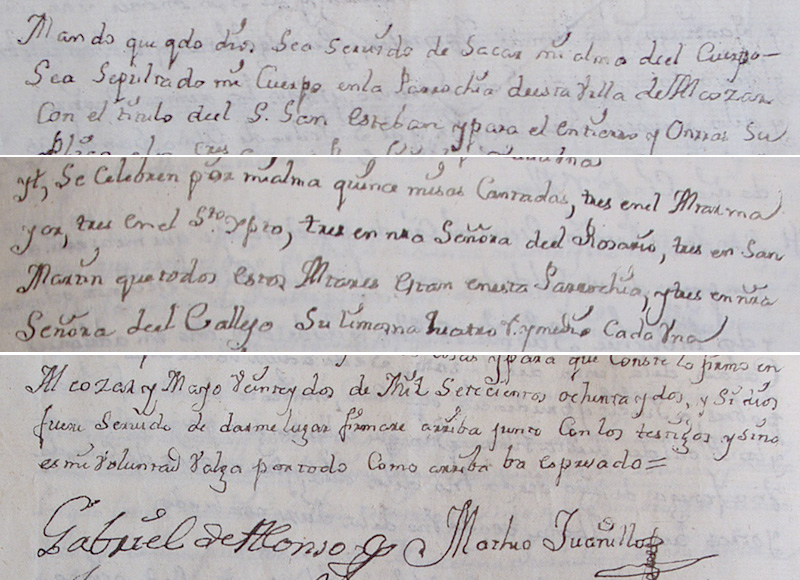 Mando que qdo dios sea servido de sacar mi alma deel Cuerpo
Sea Sepultado mi Cuerpo en la Parrochia deesta Villa de Alcozar
Con el título deel S. San Esteban y para el Entierro y Onrras Su
yt, Se Celebren por mi alma quince misas Cantadas, tres en el Altar ma
yor, tres en el Sto. Xpto, tres en nra Señora deel Rosario, tres en San
Martin que todos estos Altares estan en esta Parrochia, y tres en nra
Señora deel Vallejo Su limosna quatro r. y medio Cada Una
y para que Conste lo firmo en
Alcozar y Mayo Veinte y dos de Mil Setecientos ochenta y dos, y Si dios
fuere Servido de darme lugar firmare arriba junto Con los testigos y sino
es mi Voluntad Valga por todo Como arriba ba espresado =
Gabriel de Alonso Matheo Juanillo